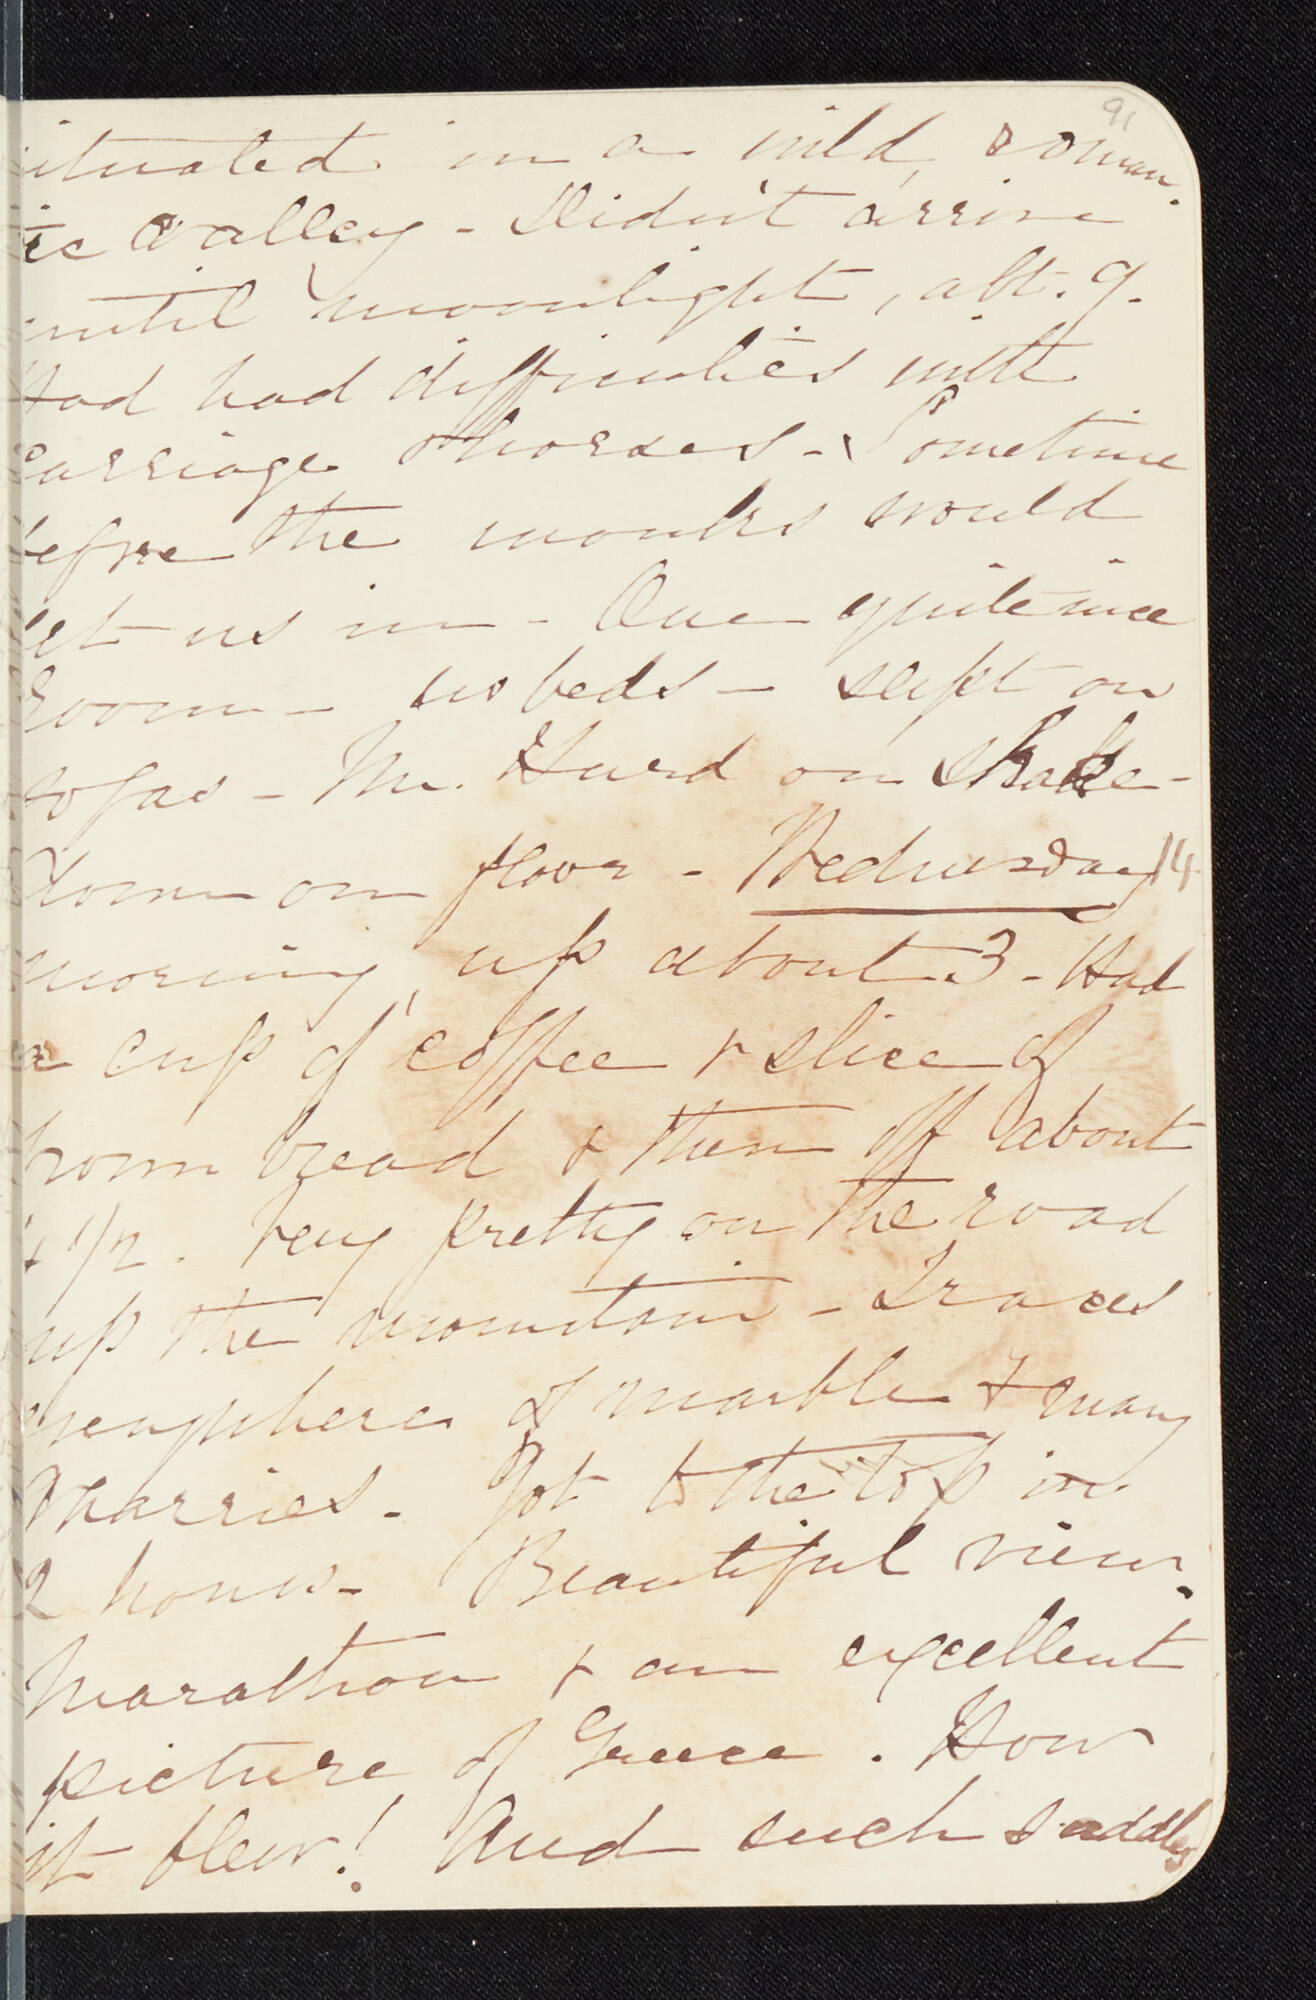 91
situated in a wild, roman-
tic valley - Didn't arrive
until moonlight, abt. 9.
Had had difficulties with
carriage & horses - Sometime
before the monks would
let us in - One quite nice
room - no beds - slept on
sofas - Mr. Hurd on shake-
down on floor - Wednesday 14
morning, up about 3 - Had
a cup of coffee & slice of
brown bread & then off about
4 1/2. Very pretty on the road
up the mountain - Traces
everywhere of marble & many
quarries - Got to the top in
2 hours - Beautiful view.
Marathon & an excellent
picture of Greece. How
it blew! And such saddles